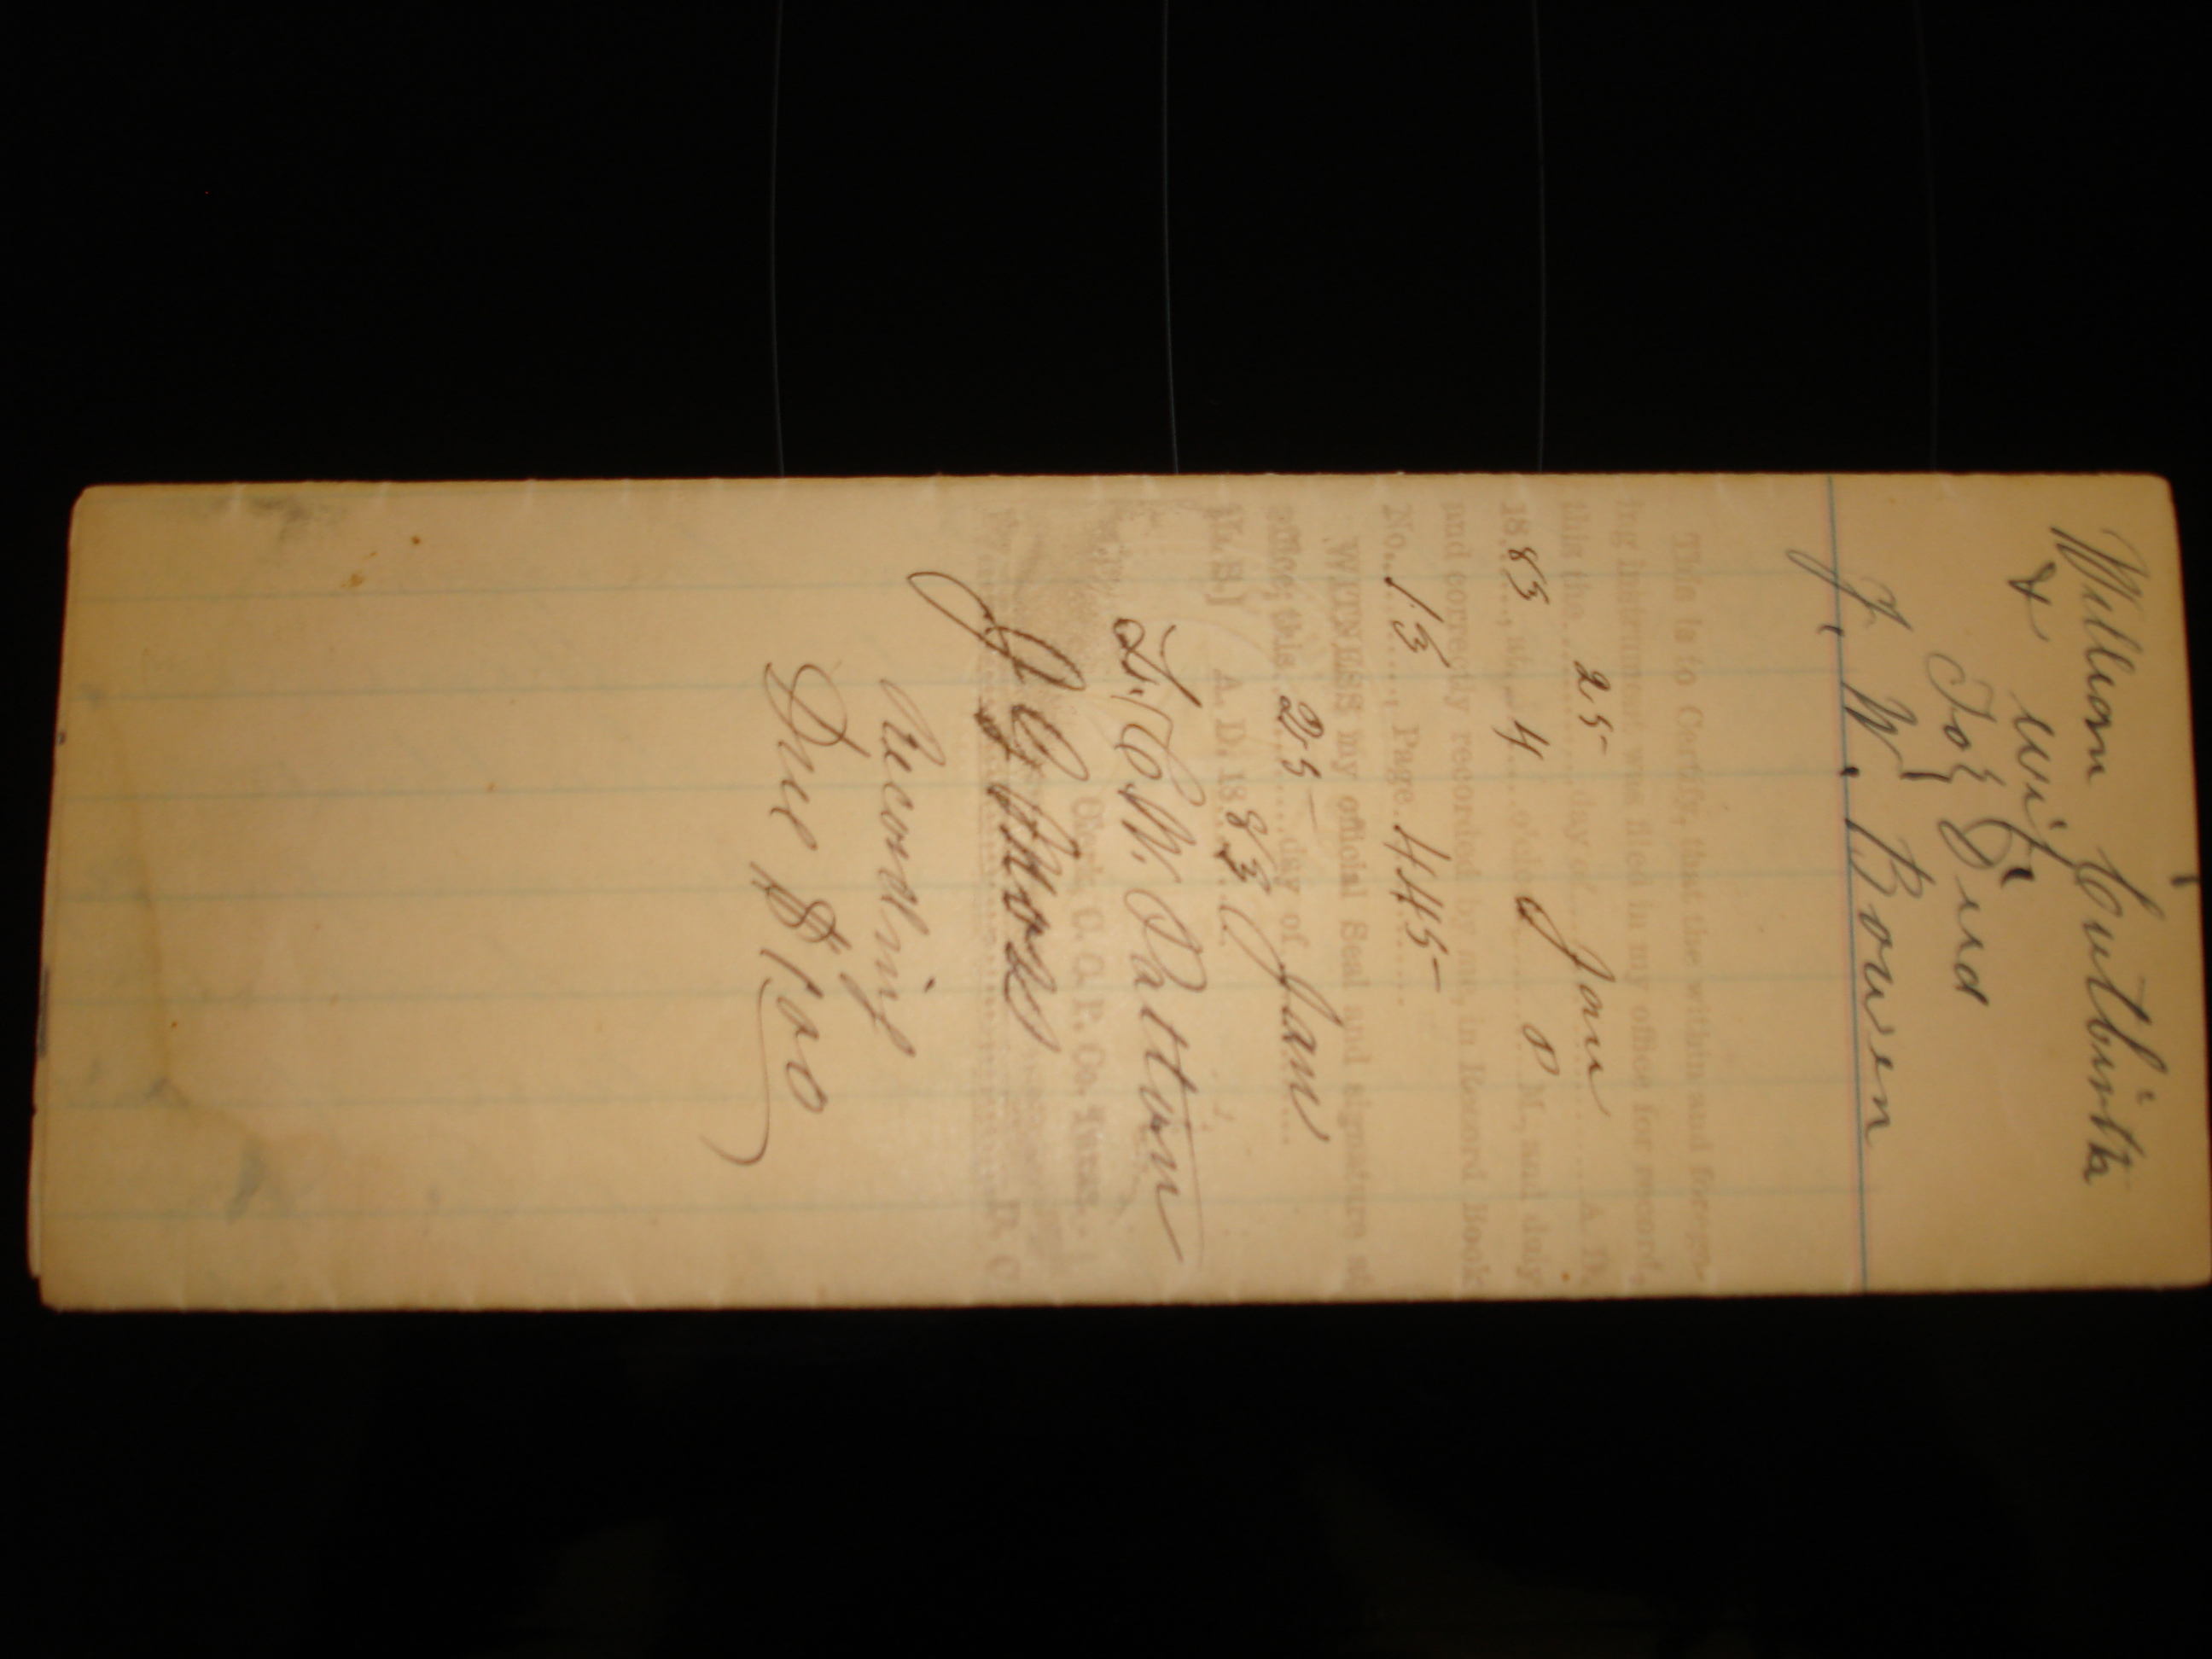 William Cutbirth
& wife
To } Deed
J. W. Bowen
This is to Certify, that the within and forego-
ing instrument was filed in my office for record,
this the 25 day of Jan A. D.
1883, at 4 o'clock P M., and duly
and correctly recorded by me, in Record Book
No. 13, Page 445
WITNESS my official Seal and signature at
office, this 25 day of Jan
[L. S.] A. D. 1883
Clerk C. C. P. Co. Texas.
Recording
Due $1.00